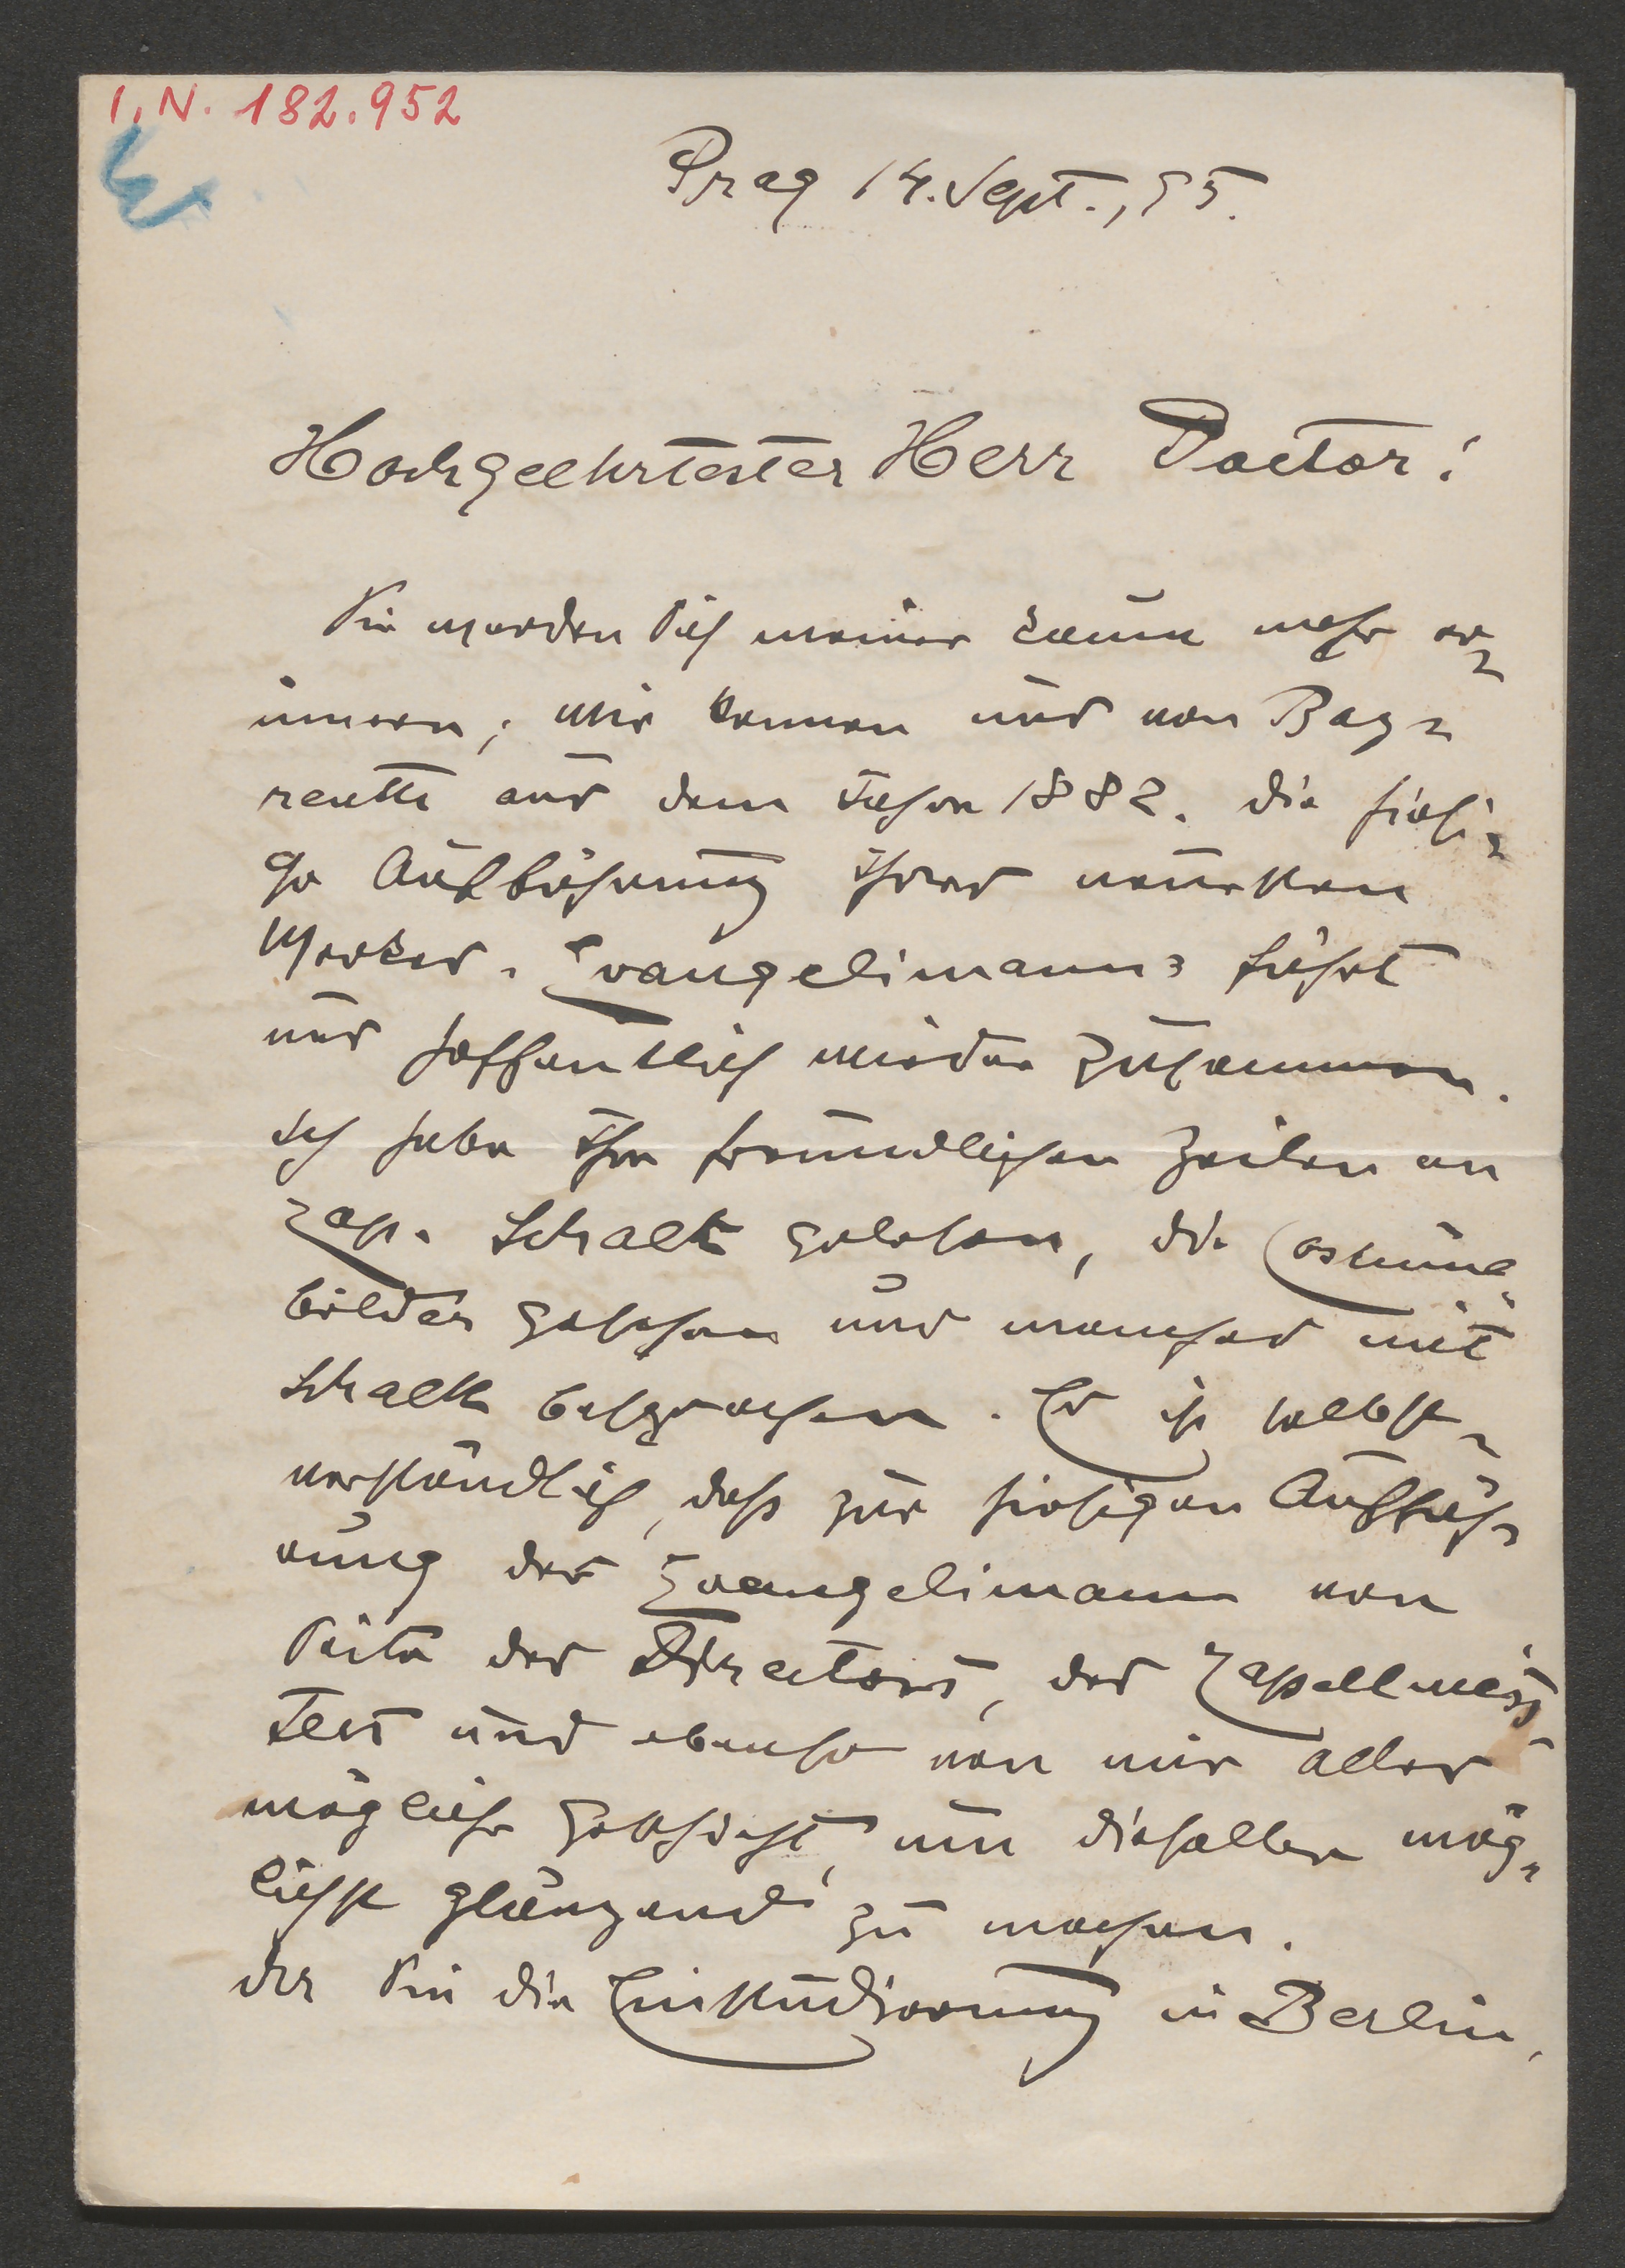 I.N. 182.952
Prag 14. Sept., 95.
Hochgeehrtester Herr Doctor!
Sie werden Sich meiner kaum mehr er=
innern; wir kennen uns von Bay=
reuth aus dem Jahre 1882. Die hiesi=
ge Aufführung Ihres neuesten
Werkes „Evangelimann" führt
uns hoffentlich wieder zusammen.
Ich habe Ihre freundlichen Zeilen an
Kap. Schalk gelesen, die Costüme=
bilder gesehen und manches mit
Schalk besprochen. Es ist selbst=
verständlich, daß zur hiesigen Auffüh=
rung des Evangelimann von
Seite des Directors, des Kapellmeis=
ters und ebenso von mir alles
mögliche geschieht, um dieselbe mög=
lichst glänzend zu machen.
Da Sie die Einstudierung in Berlin,